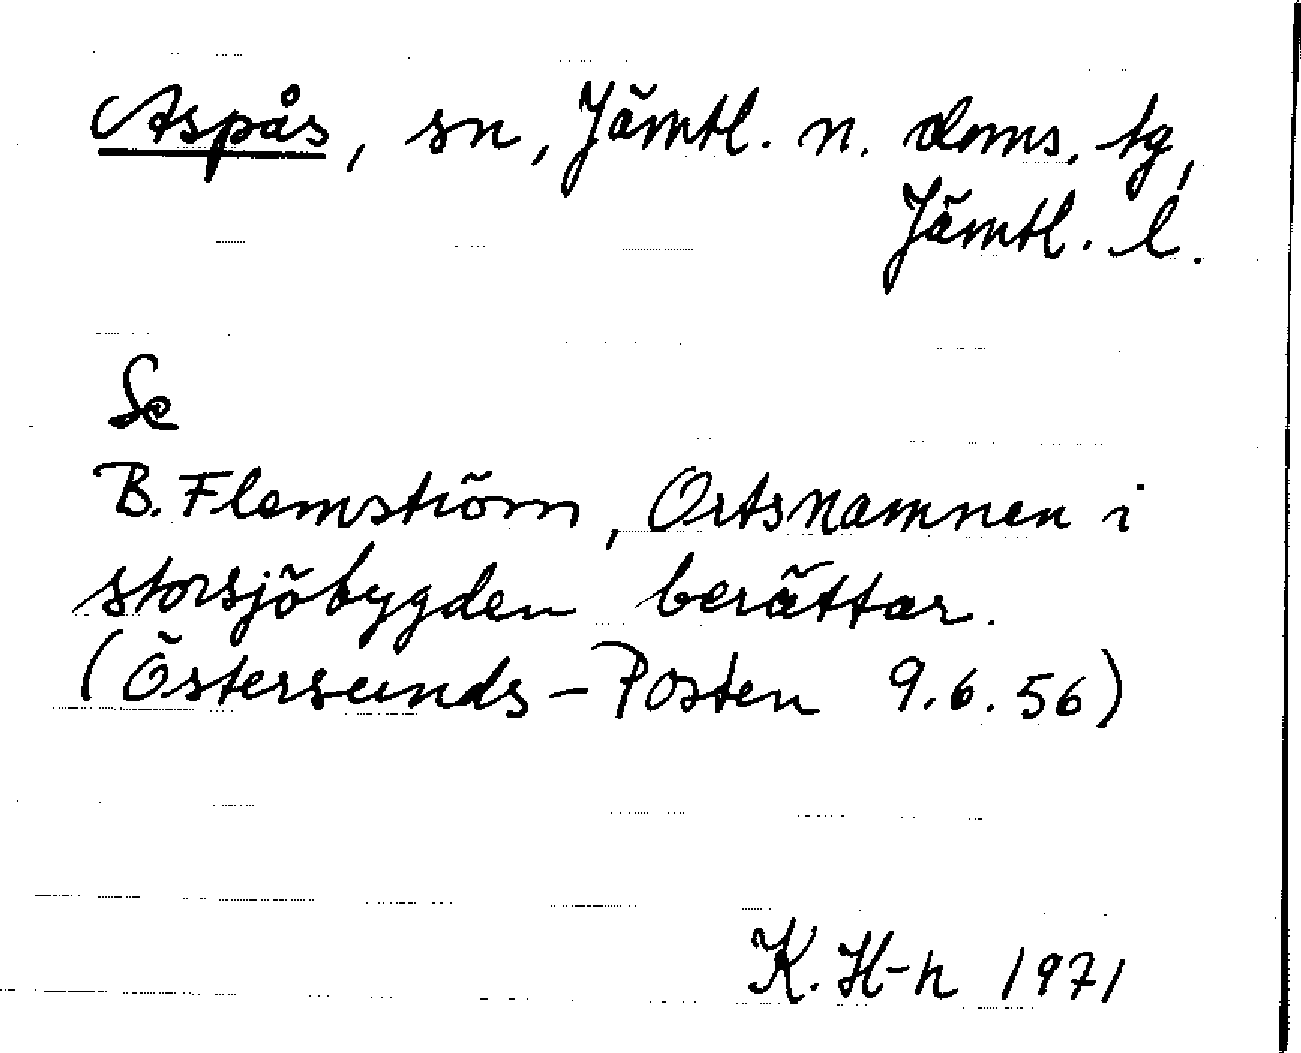 Aspås, sn, Jämtl. n. doms. tg,
Jämtl. l.
Se
B. Flemström, Ortsnamnen i
storsjöbygden berättar.
(Östersunds-Posten 9.6.56)
K. H-n 1971